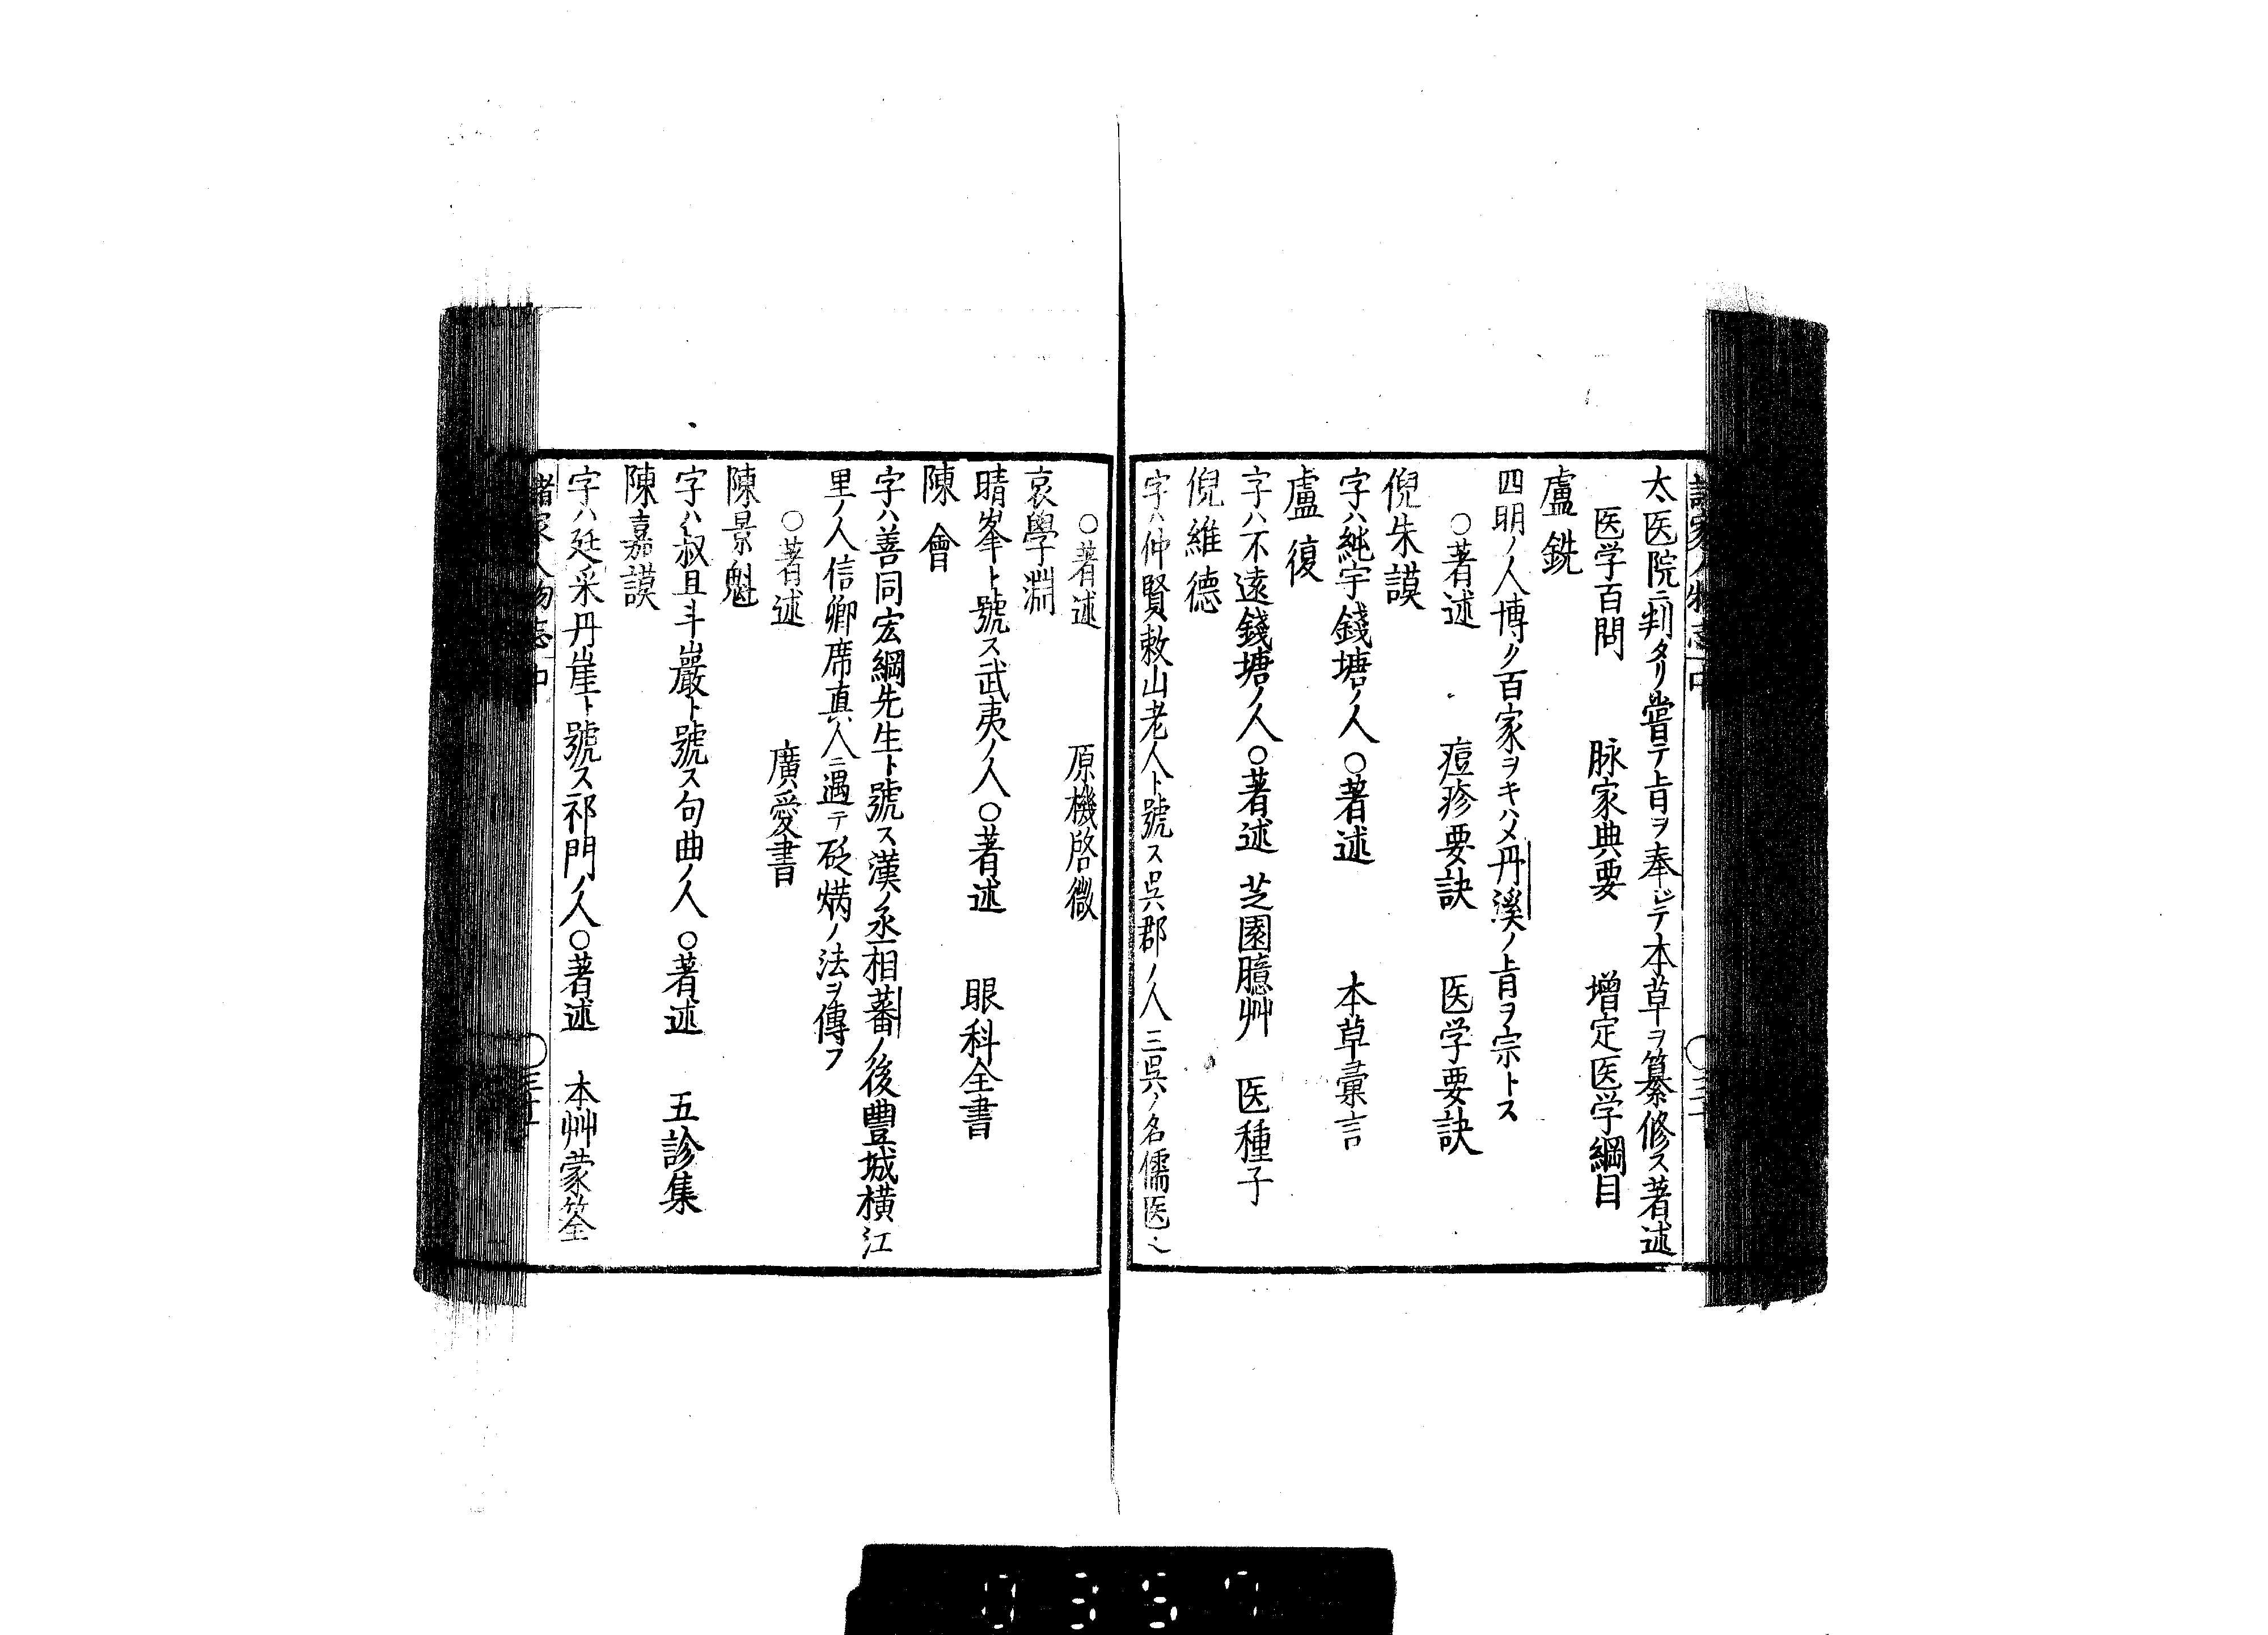 諸家人物志 中
太医院ニ判タリ嘗テ旨ヲ奉ジテ本草ヲ纂修ス著述
医学百問 脉家典要 增定医学綱目
盧銑
四明ノ人博ク百家ヲキハメ丹溪ノ旨ヲ宗トス
○著述 痘疹要訣 医学要訣
倪朱謨
字ハ純宇錢塘ノ人○著述 本草彙言
盧復
字ハ不遠錢塘ノ人○著述 芝園臆艸 医種子
倪維德
字ハ仲賢敕山老人ト號ス呉郡ノ人三呉ノ名儒医也
○著述 原機啓微
哀學淵
晴峯ト號ス武夷ノ人○著述 眼科全書
陳會
字ハ善同宏綱先生ト號ス漢ノ丞相蕃ノ後豐城横江
里ノ人信卿席真人ニ遇テ砭焫ノ法ヲ傳フ
○著述 廣愛書
陳景魁
字ハ叔且斗巖ト號ス句曲ノ人○著述 五診集
陳嘉謨
字ハ廷采丹崖ト號ス祁門ノ人○著述 本艸蒙筌
諸家人物志 中
0357